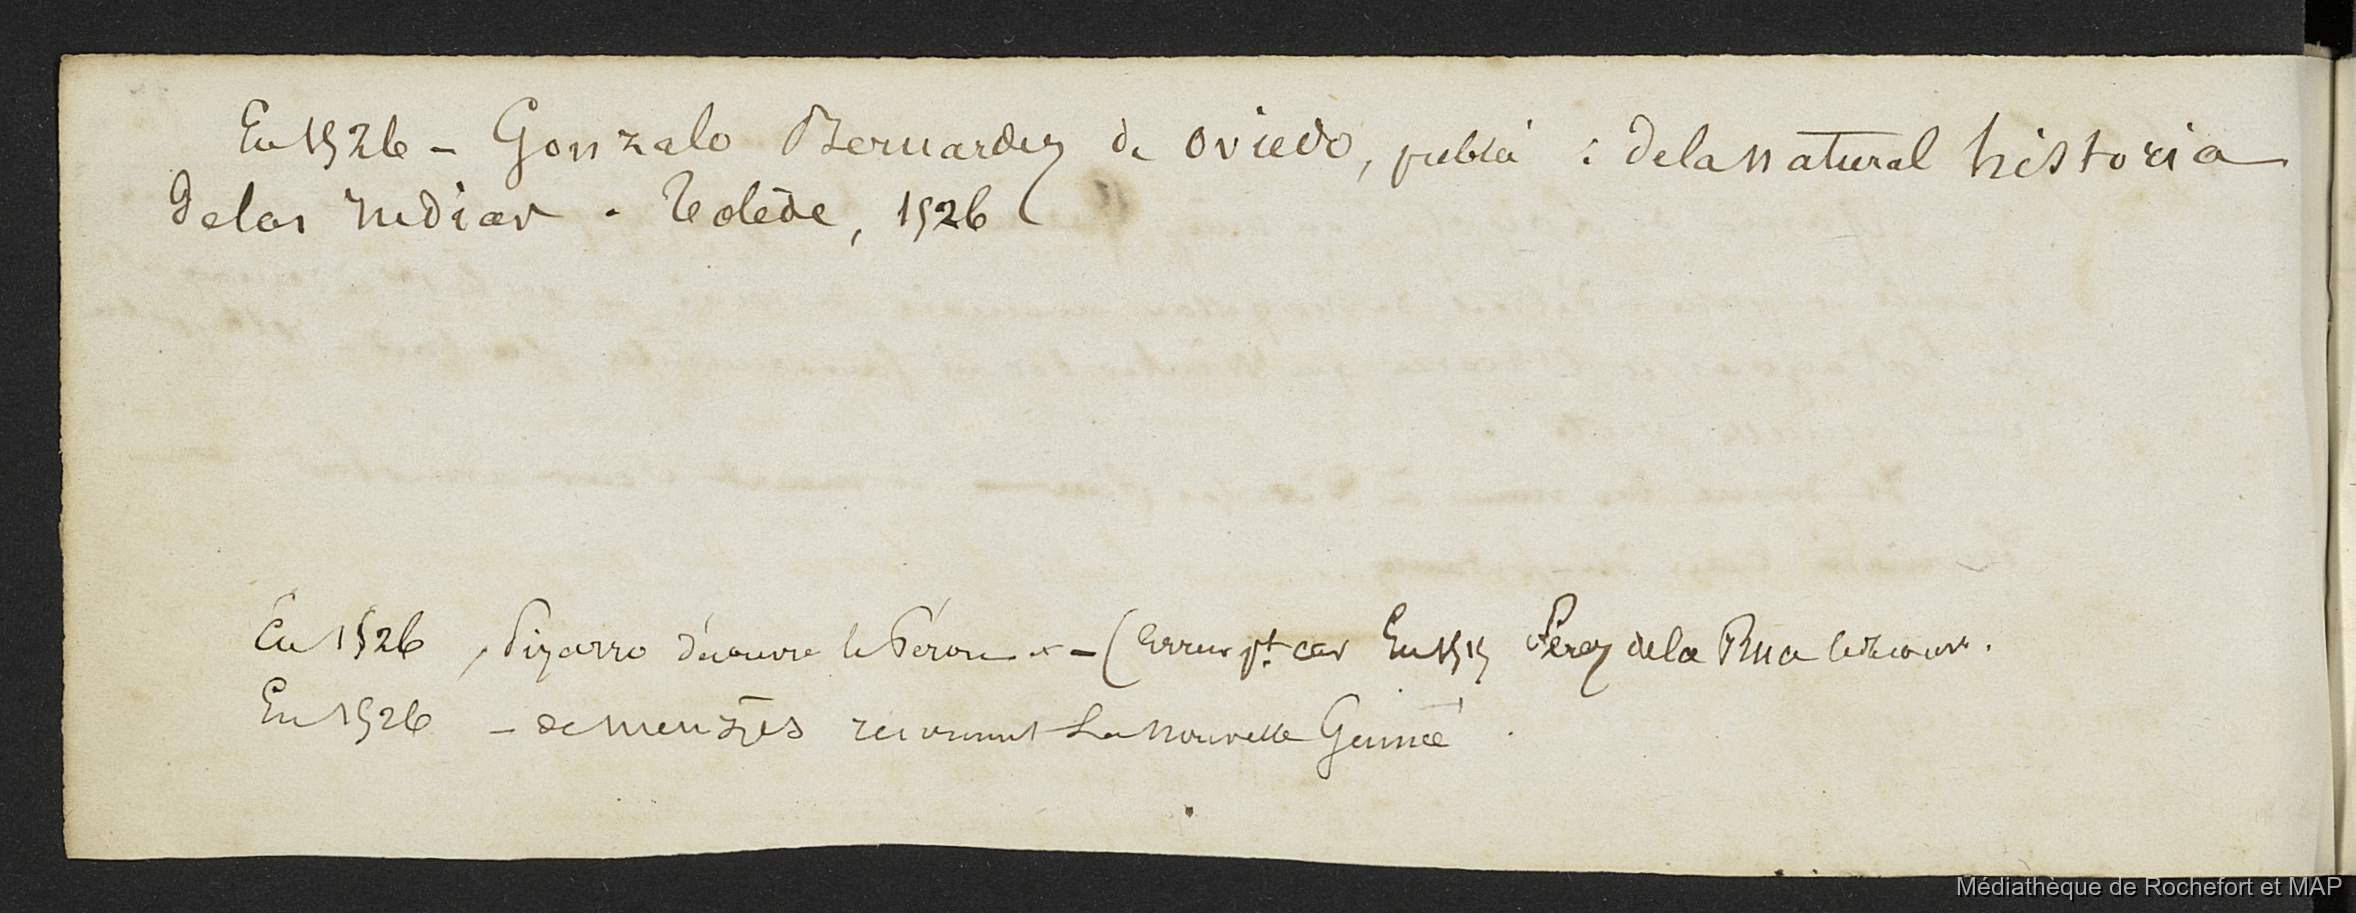 En 1526 – Gonzalo Bernardez de Oviedo, publia : De la natural historia
de las Indias . Tolède, 1526
En 1526 , Pizarro découvre le Pérou – (Erreur pt car En 1515 Perez de la Rua le découvr.
En 1526 – de Menezès reconnut La Nouvelle Guinée .
Médiathèque de Rochefort et MAP